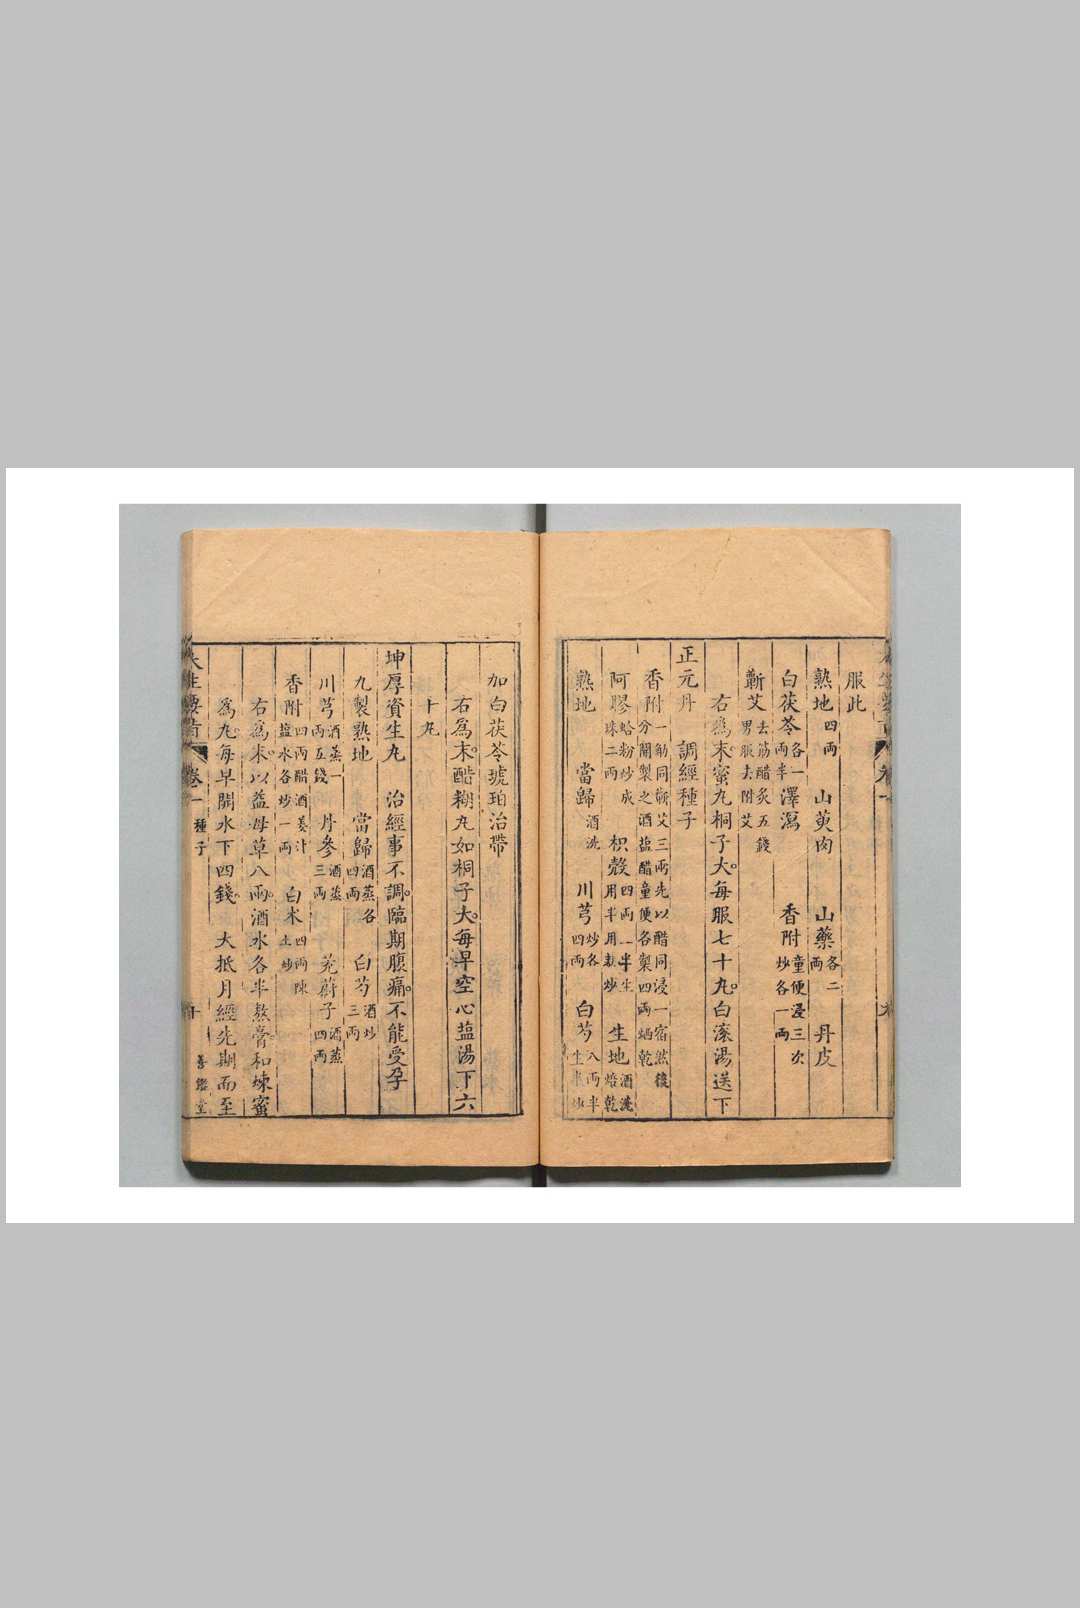 服此
熟地四兩 山萸肉 山藥各二兩 丹皮
白茯苓各一兩半 澤瀉 香附童便浸三次炒各一兩
蘄艾去筋醋炙五錢男服去附艾
右爲末蜜丸桐子大每服七十丸白滚湯送下
正元丹 調經種子
香附一觔同蘄艾三兩先以醋同浸一宿然後分開製之酒盐醋童便各製四兩晒乾
阿膠蛤粉炒成珠二兩 枳殼四兩一半生用半用麩炒 生地酒洗焙乾
熟地 當歸酒洗 川芎炒各四兩 白芍八兩半生半炒
加白茯苓琥珀治帶
右爲末醋糊丸如桐子大每早空心盐湯下六
十丸
坤厚資生丸 治經事不調臨期腹痛不能受孕
九製熟地 當歸酒蒸各四兩 白芍酒炒三兩
川芎酒蒸一兩五錢 丹參酒蒸三兩 茺蔚子酒蒸四兩
香附四兩醋酒姜汁盐水各炒一兩 白朮四兩陳土炒
右爲末以益母草八兩酒水各半熬膏和煉蜜
爲丸每早開水下四錢 大抵月經先期而至
大生要旨 卷一 種子 十 善鑑堂